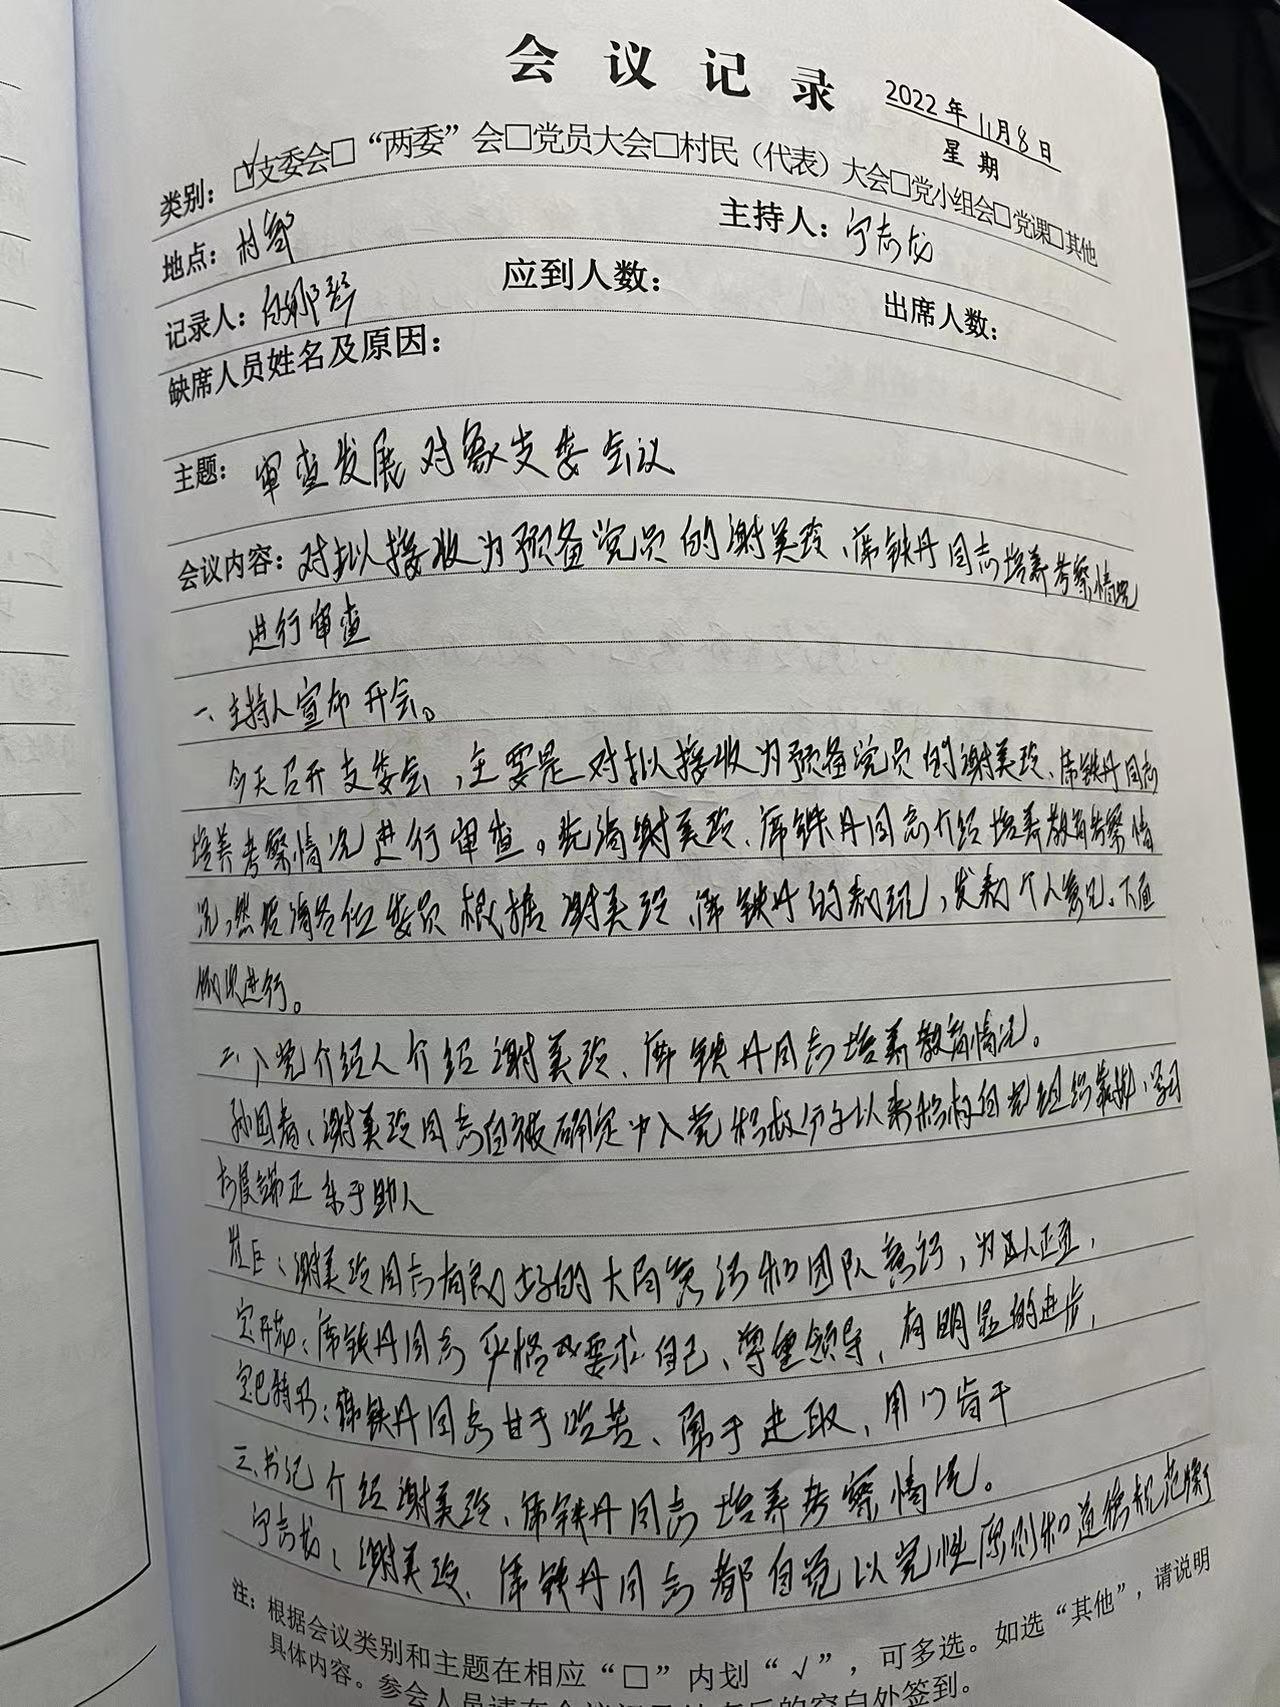 会议记录
2022年11月8日
星期
类别：☑支委会□“两委”会□党员大会□村民（代表）大会□党小组会□党课□其他
地点：村部 主持人：宁志龙
记录人：白娜琴 应到人数： 出席人数：
缺席人员姓名及原因：
主题：审查发展对象支委会议
会议内容：对拟接收为预备党员的谢美玲、席铁丹同志培养考察情况
进行审查
一、主持人宣布开会。
今天召开支委会，主要是对拟接收为预备党员的谢美玲、席铁丹同志
培养考察情况进行审查。先请谢美玲、席铁丹同志介绍培养教育考察情
况，然后请各位委员根据谢美玲、席铁丹的表现，发表个人意见。下面
依次进行。
二、入党介绍人介绍谢美玲、席铁丹同志培养教育情况。
孙国春：谢美玲同志自被确定为入党积极分子以来积极向党组织靠拢，学习
态度端正 乐于助人
谢美玲同志有良好的大局意识和团队意识，为人正直，
席铁丹同志严格要求自己、尊重领导，有明显的进步，
宝巴特尔：席铁丹同志甘于吃苦、勇于进取，用心肯干
三、书记介绍谢美玲、席铁丹同志培养考察情况。
宁志龙：谢美玲、席铁丹同志都自觉以党性原则和道德规范
注：根据会议类别和主题在相应“□”内划“√”，可多选。如选“其他”，请说明
具体内容。参会人员请在会议记录 的空白处签到。